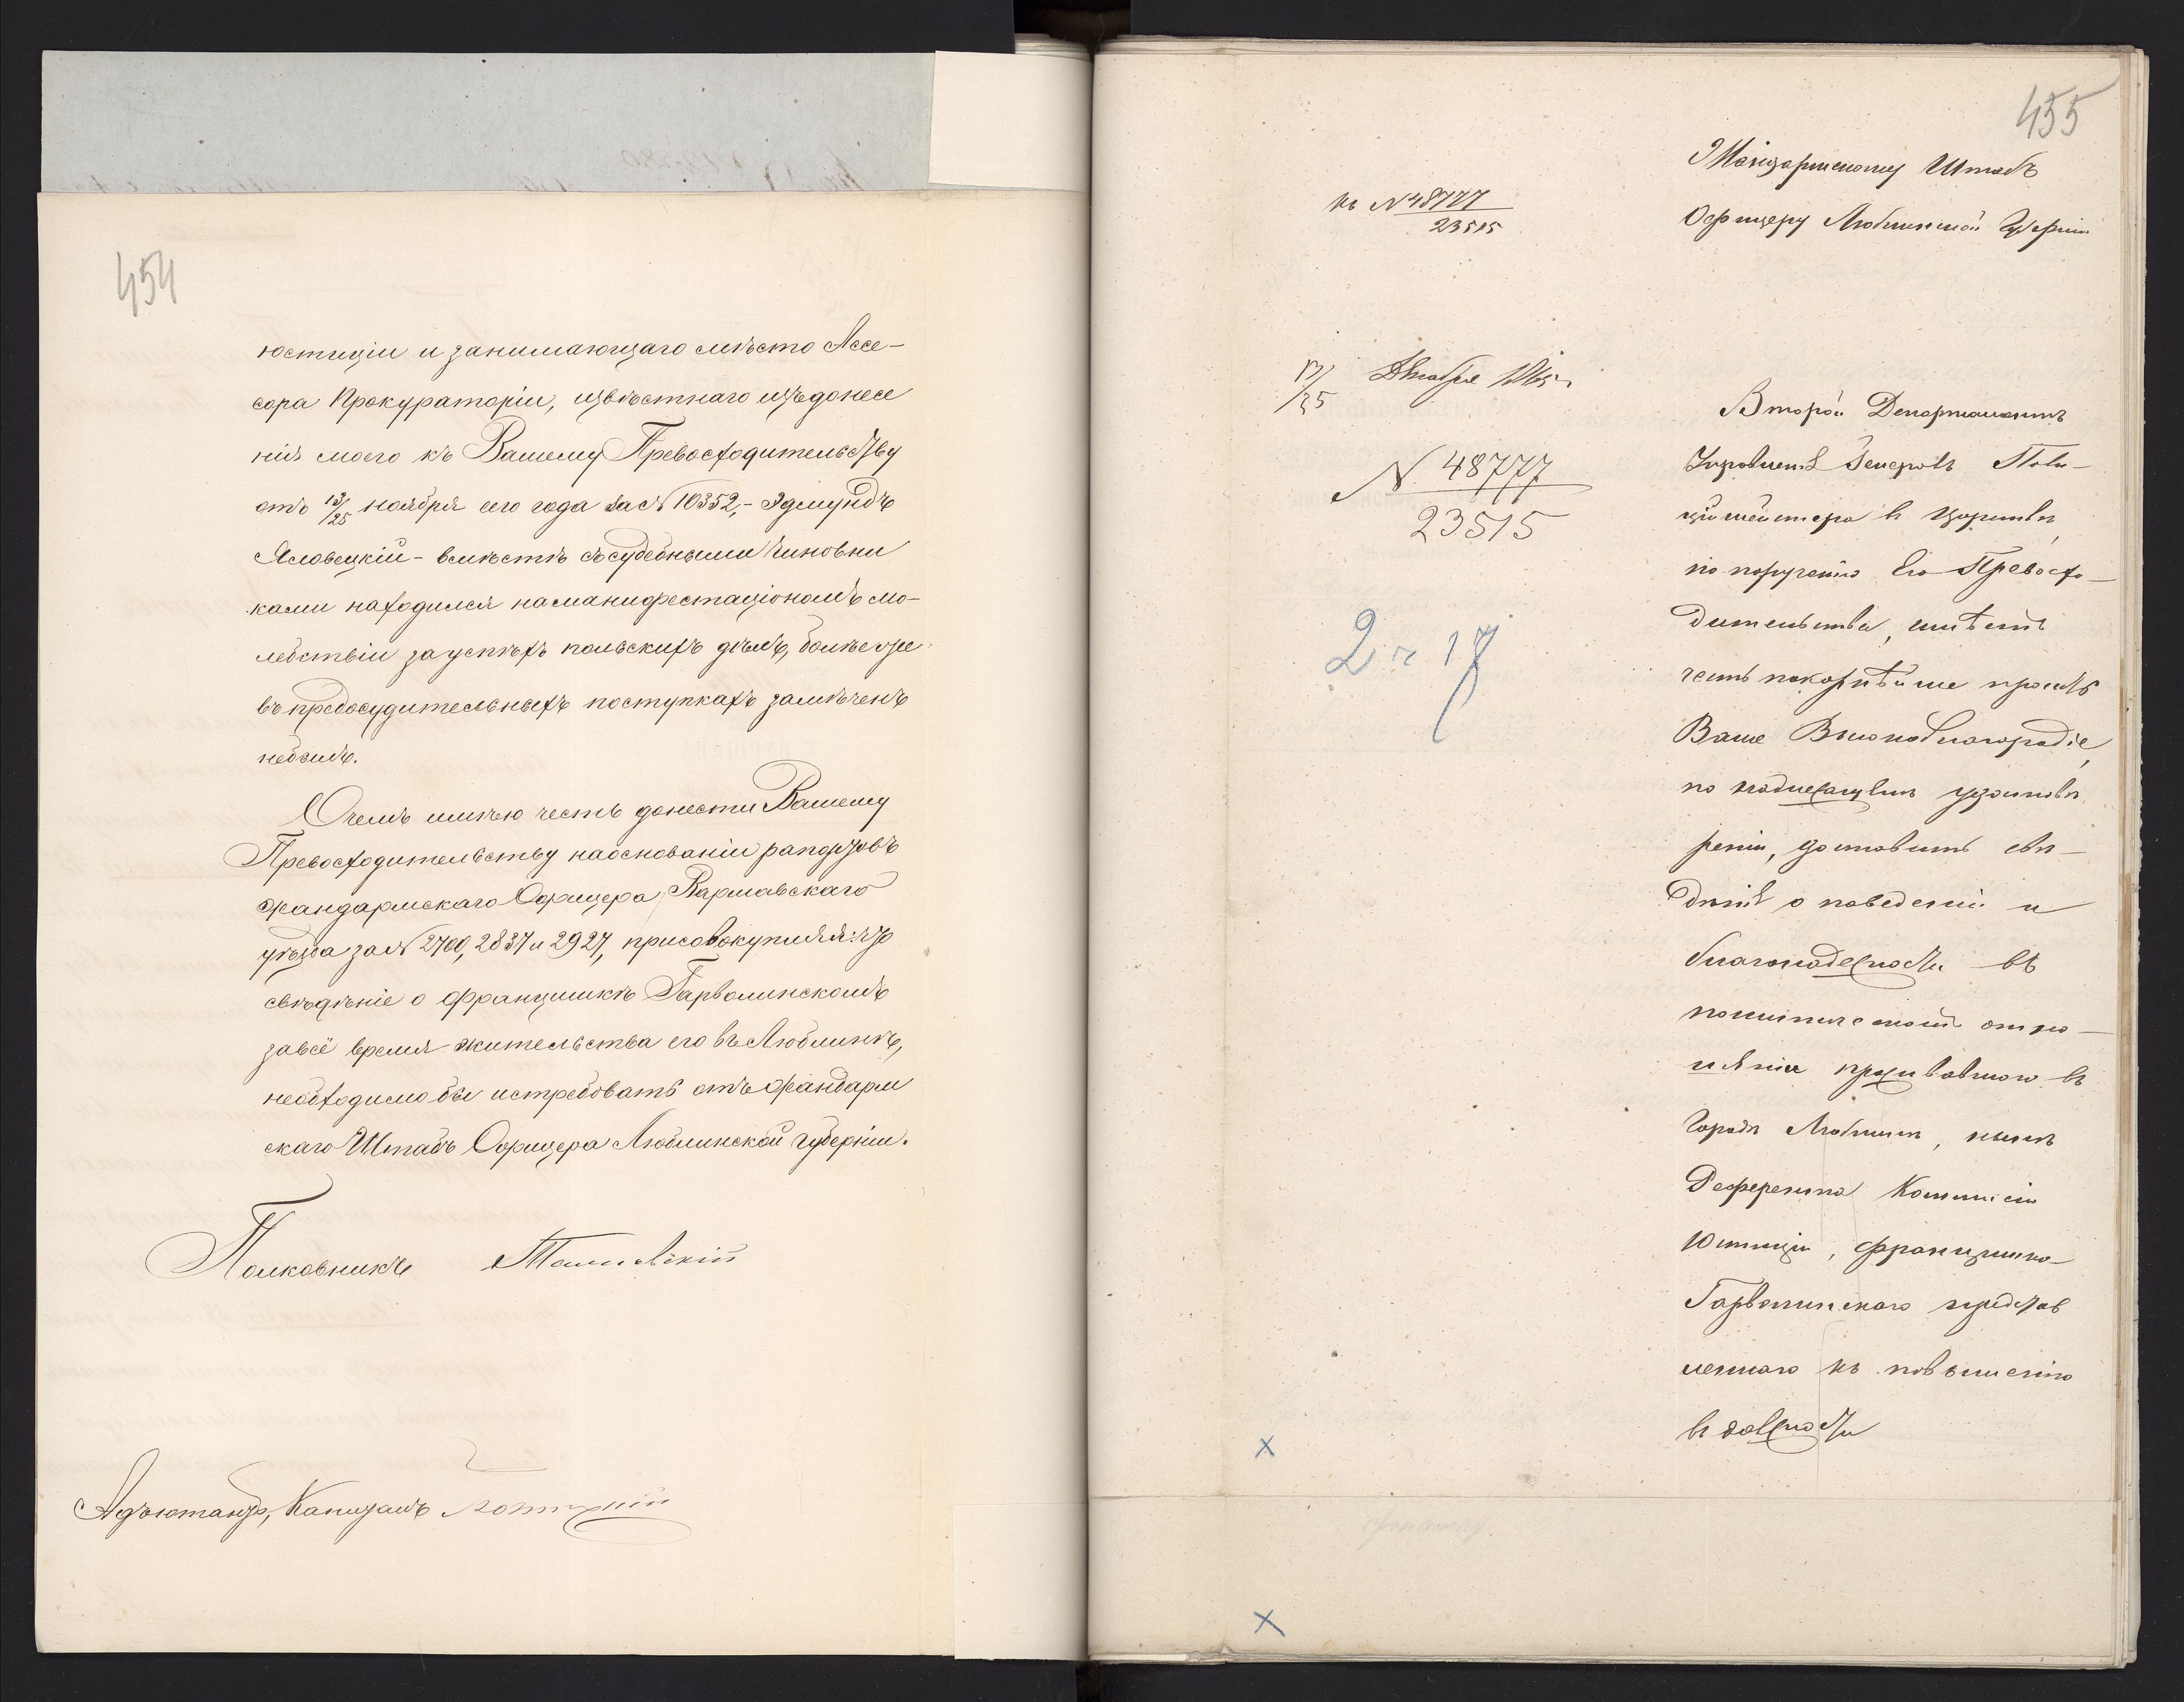 454
юстиціи и занимающаго мѣсто Ассе-
сора Прокураторіи, извѣстнаго изъ донесе
нія моего къ Вашему Превосходительству
отъ 13/25 ноября сего года за № 10352,- Эдмундъ
Яловецкій - вмѣстѣ съ судебными чиновни
ками находился на манифестаціономъ мо-
лебствіи за успѣхъ польскихъ дѣлъ, болѣе же
въ предосудительныхъ поступкахъ замѣченъ
небылъ.
О чемъ имѣю честь донести Вашему
Превосходительству наоснованіи рапортовъ
жандармскаго Офицера Варшавскаго
уѣзда за № 2700, 2837 и 2927, присовокупляя: что
свѣдѣніе о Францишкѣ Гарволинскомъ
за всё время жительства его въ Люблинѣ,
необходимо бы истребовать отъ жандарм
скаго Штабъ Офицера Люблинской губерніи.
Полковникъ
Адъютантъ, Капитанъ
455
Жандармскому Штабъ
Офицеру Люблинской Губерніи
къ № 48777
23515
13/25 Декабря
№ 48777
23515
2 17
Второй Департаментъ
Управленія Генералъ Поли-
цiймейстера въ Царствѣ,
по порученію Его Превосхо-
дительства, имѣетъ
честь покорнѣйше просить
Ваше Высокоблагородіе,
по надлежащемъ удостовѣ
реніи, доставить свѣ-
дѣнія о поведеніи и
благонадежности въ
политическомъ отно-
шеніи проживавшаго въ
Городѣ Люблинѣ, нынѣ
Референта Коммисіи
Юстиціи, Францишка
Гарволинскаго представ
леннаго къ повышенію
въ должности